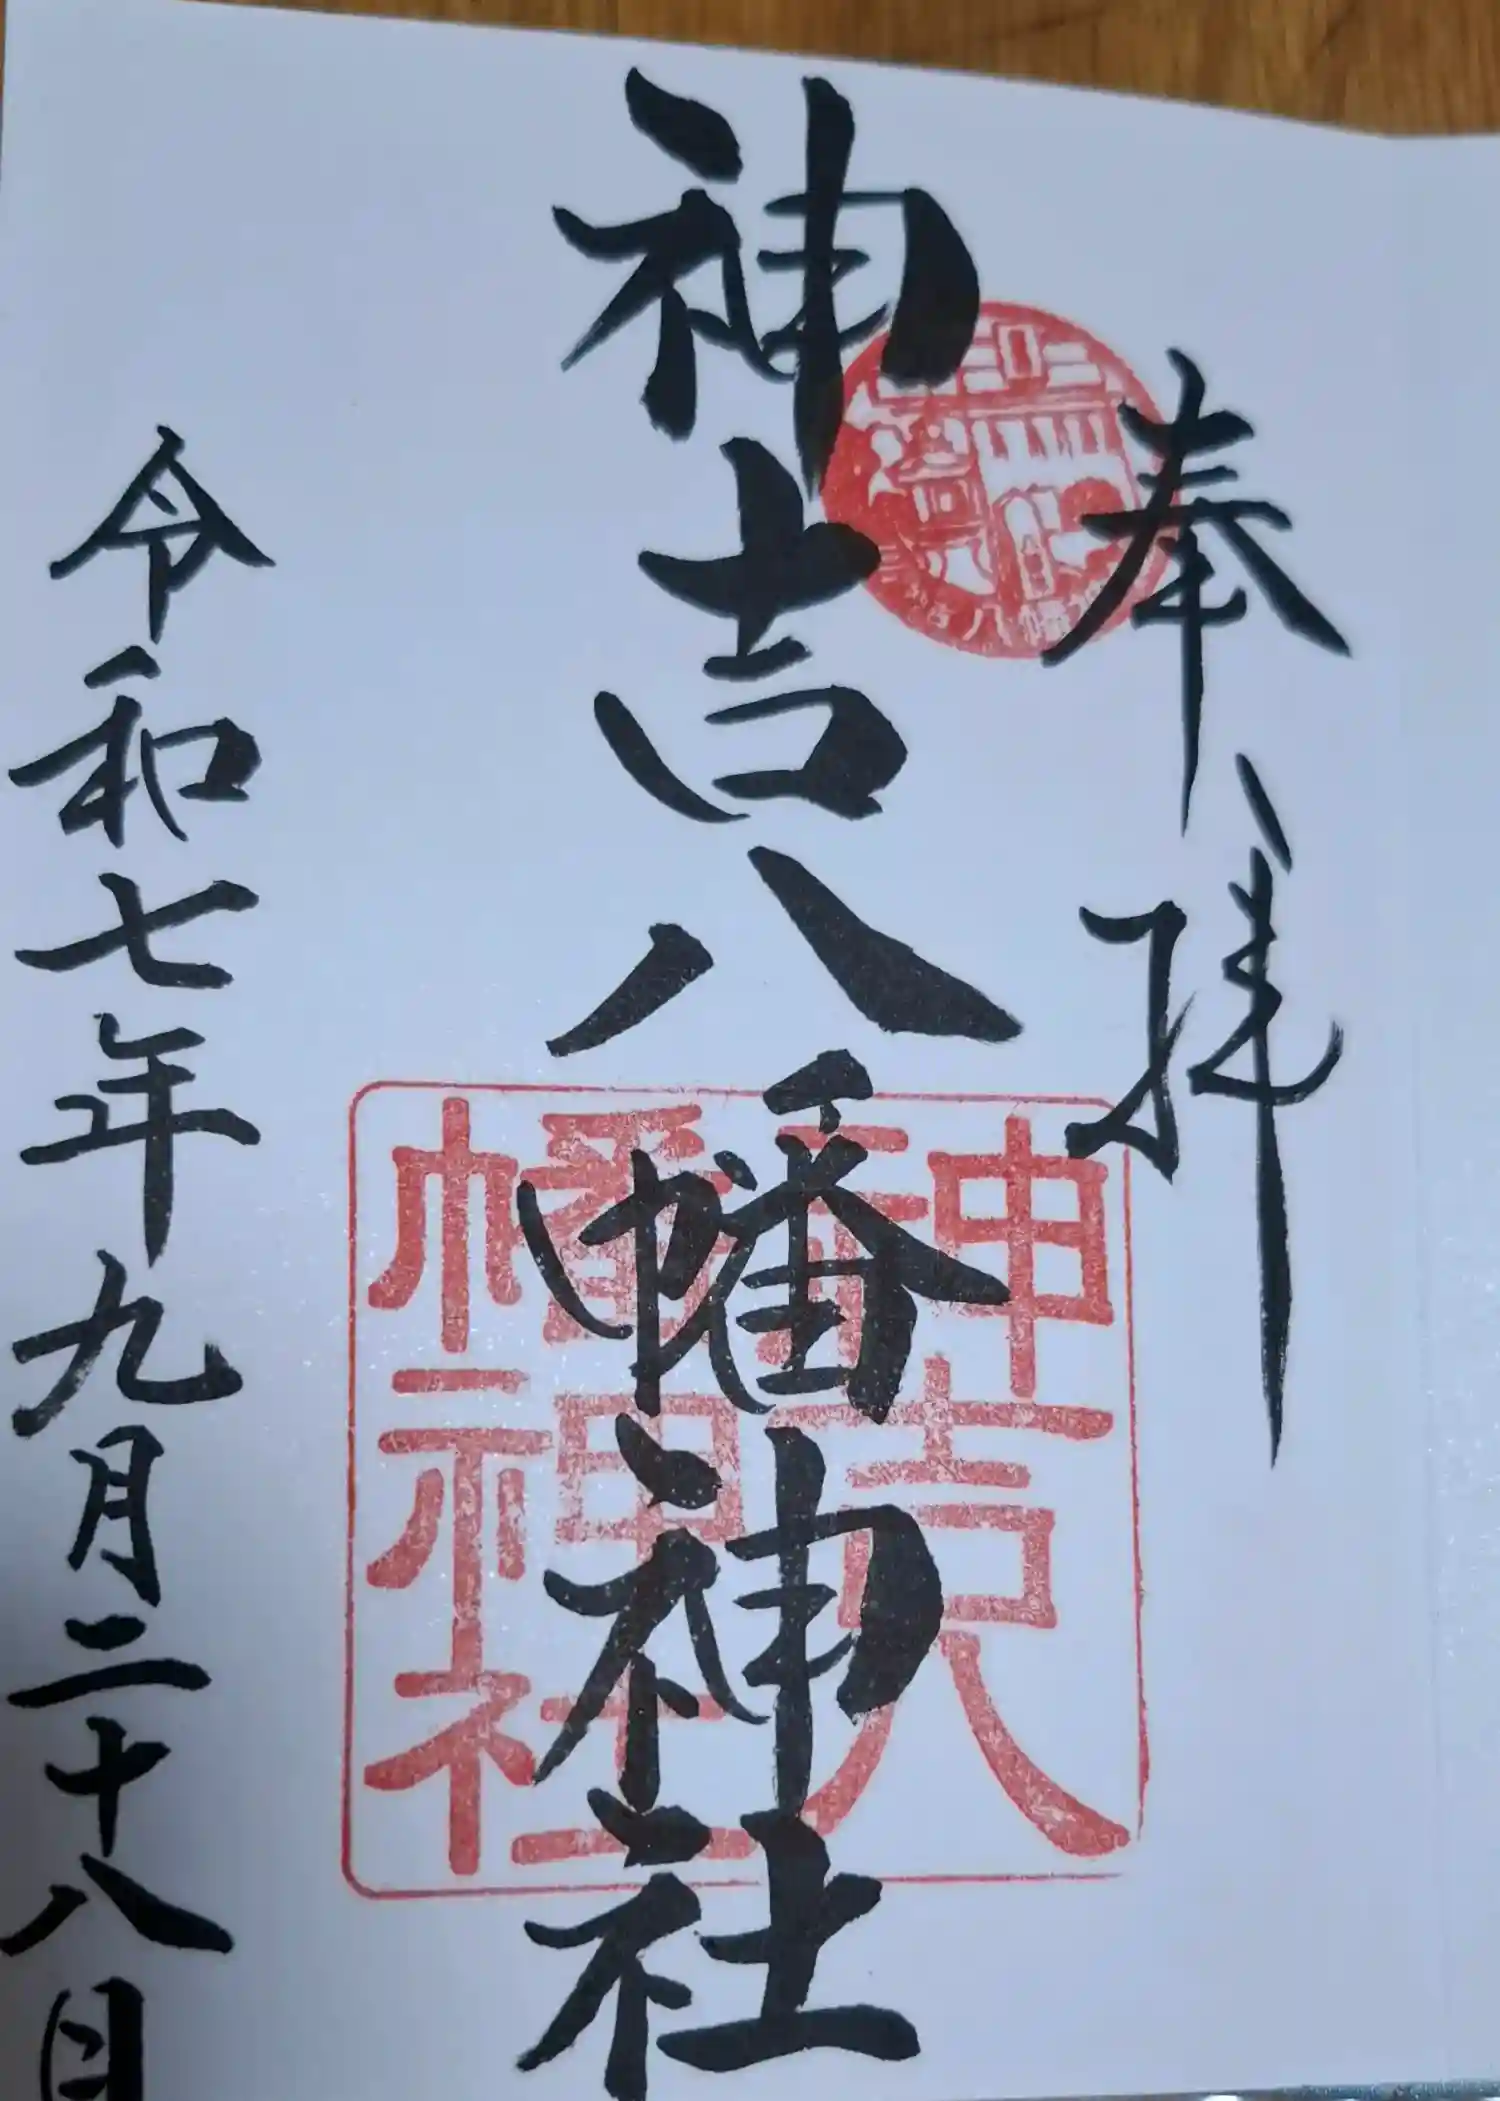 奉拝
神吉八幡神社
神吉八
幡神社
令和七年九月二十八日